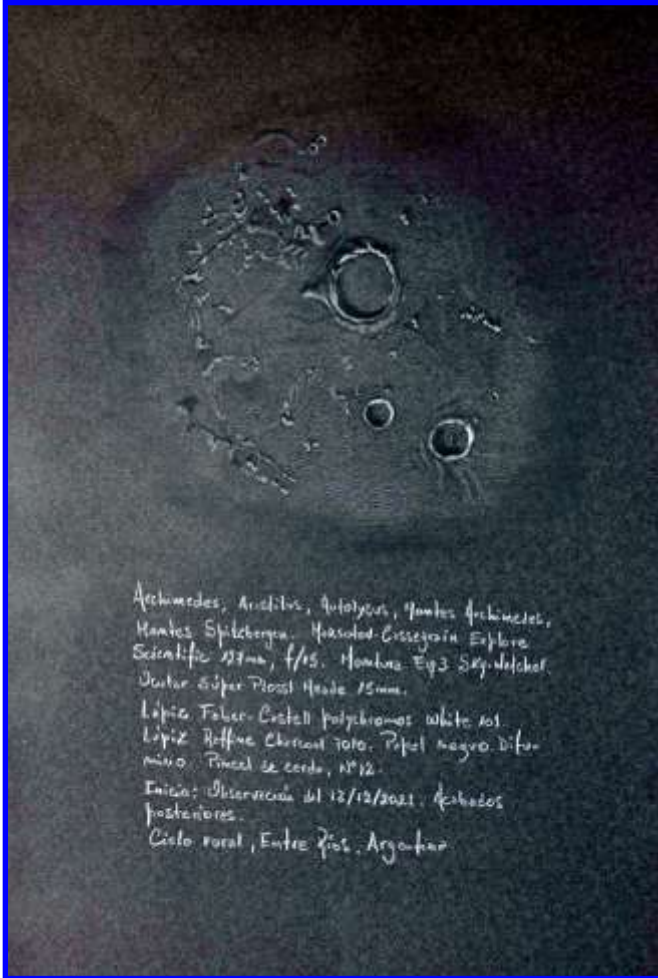 Archimedes, Aristilus, Autolycus, Montes Archimedes,
Montes Spitzbergen. Maksutov-Cassegrain Explore
Scientific 127mm, f/15. Montura Eq3 Sky-Watcher.
Ocular Súper Plossl Meade 15mm.
Lápiz Faber-Castell polychromos white 101.
Lápiz Raffine Charcoal 7010. Papel negro. Difu-
mino. Pincel de cerda, Nº12.
Inicio: Observación del 12/12/2021. Acabados
posteriores.
Cielo rural, Entre Ríos, Argentina